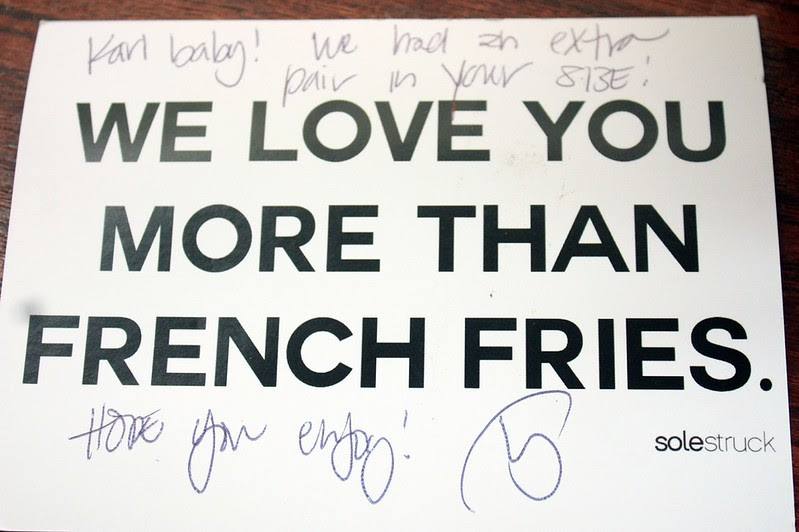 Karl baby! We had an extra
pair in your SIZE!
WE LOVE YOU
MORE THAN
FRENCH FRIES.
Hope you enjoy!
solestruck